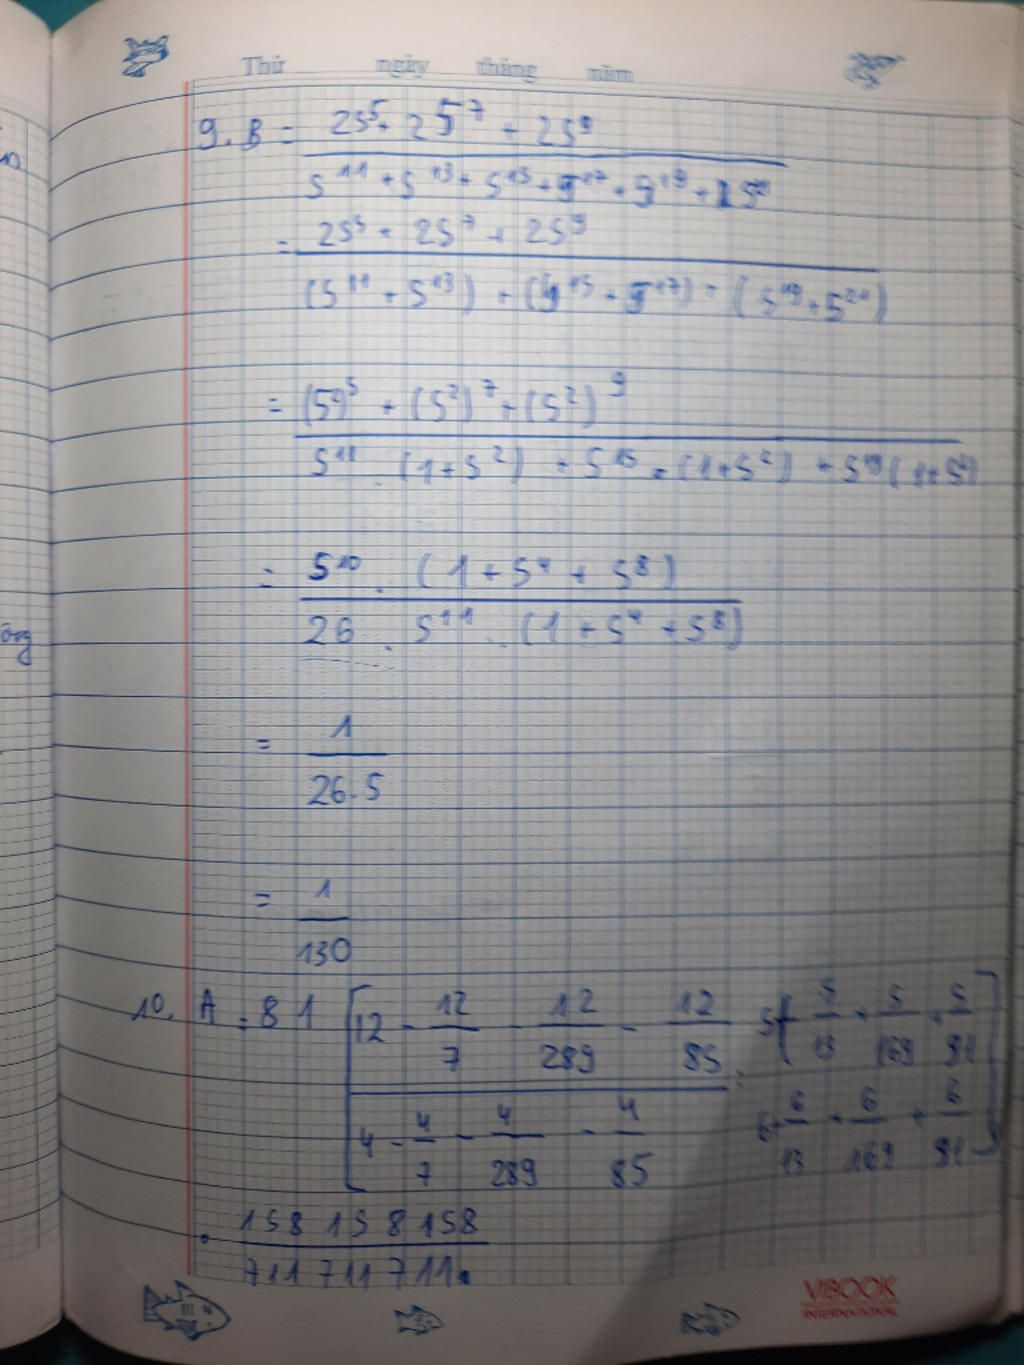 Thứ ngày tháng năm
9. B = 25⁵ + 25⁷ + 25⁹
5¹¹ + 5¹³ + 5¹⁵ + 5¹⁷ + 5¹⁹ + 5²¹
= 25⁵ + 25⁷ + 25⁹
(5¹¹ + 5¹³) + (5¹⁵ + 5¹⁷) + (5¹⁹ + 5²¹)
= (5²)⁵ + (5²)⁷ + (5²)⁹
5¹¹ . (1 + 5²) + 5¹⁵ . (1 + 5²) + 5¹⁹ (1 + 5²)
= 5¹⁰ . (1 + 5⁴ + 5⁸)
26 . 5¹¹ . (1 + 5⁴ + 5⁸)
= 1
26 . 5
= 1
130
10. A = 81 [ 12 - 12/7 - 12/289 - 12/85 : 5 + 5/13 + 5/169 + 5/91 ]
4 - 4/7 - 4/289 - 4/85 6 + 6/13 + 6/169 + 6/91
. 158 158 158
711 711 711.
VIBOOK
INTERNATIONAL